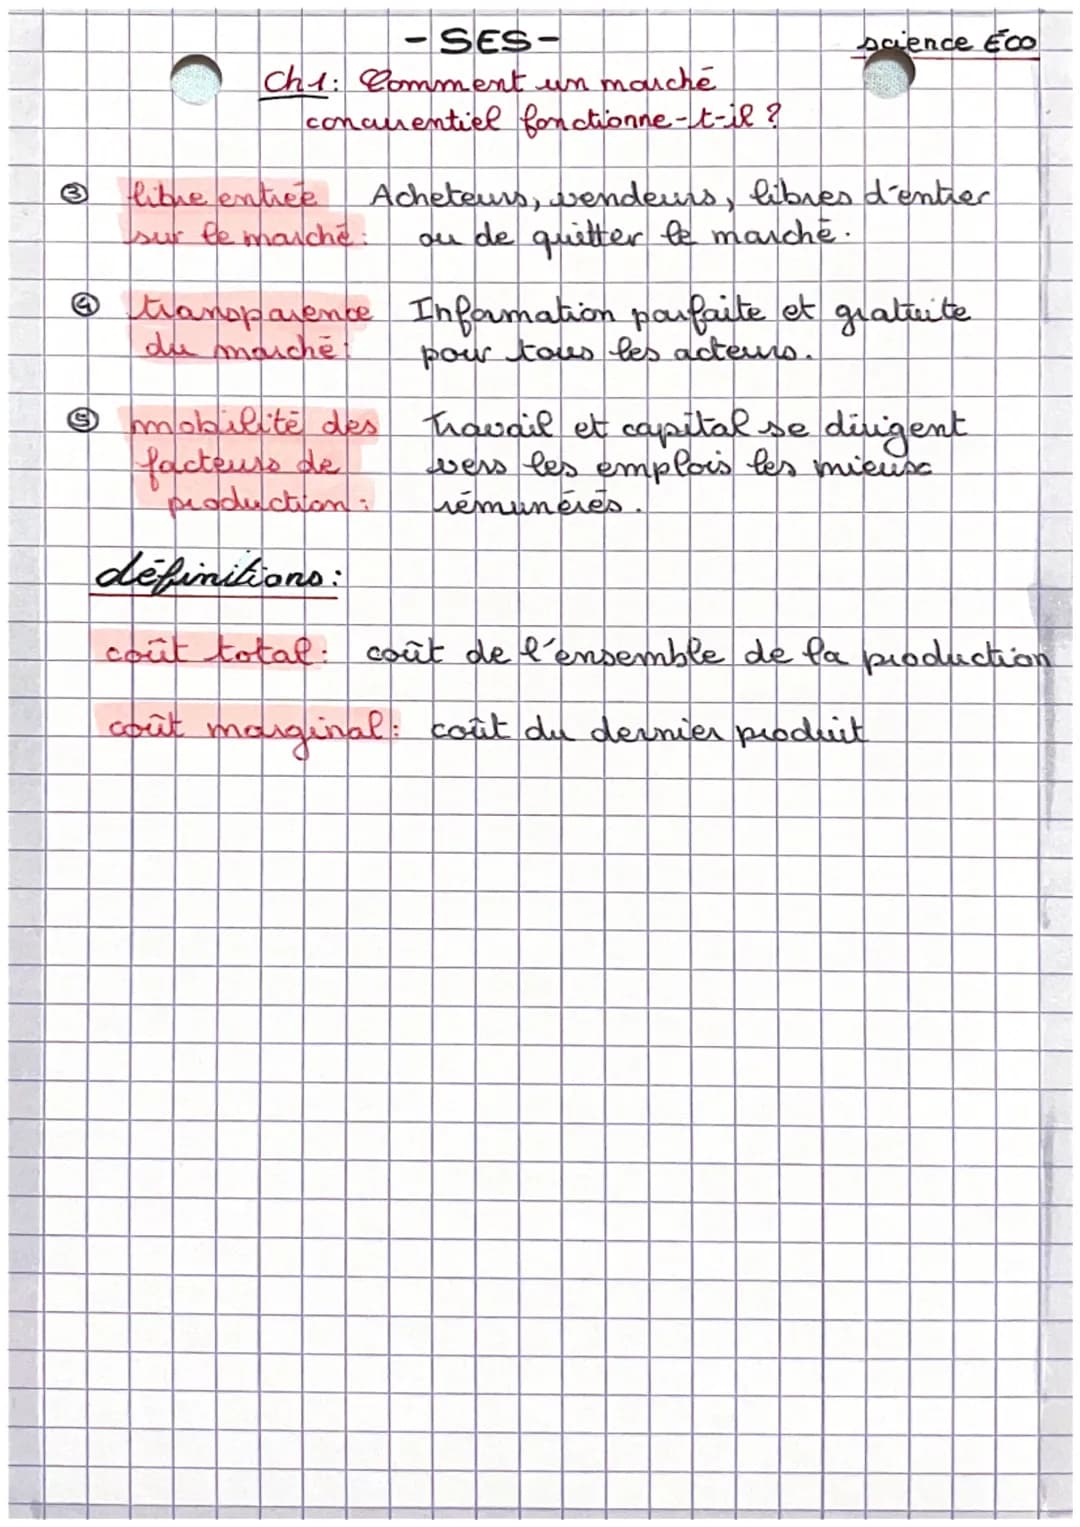 - SES -
science Éco
Ch 1: Comment un marché
concurentiel fonctionne-t-il ?
③ libre entrée Acheteurs, vendeurs, libres d'entrer
sur le marché: ou de quitter le marché.
④ transparence Information parfaite et gratuite
du marché: pour tous les acteurs.
⑤ mobilité des Travail et capital se dirigent
facteurs de vers les emplois les mieux
production: rémunérés.
définitions:
coût total: coût de l'ensemble de la production
coût marginal: coût du dernier produit